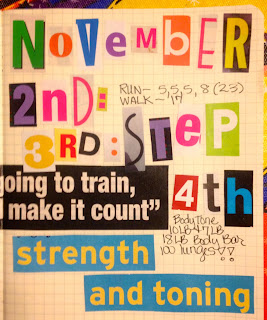 NovembER
2ND:
RUN~ 5,5,5,8 (23)
WALK~ 17
3RD: STEP
going to train,
make it count"
4th
Body Tone
10LB + 7LB
18LB Body Bar
100 lunges!!
strength
and toning